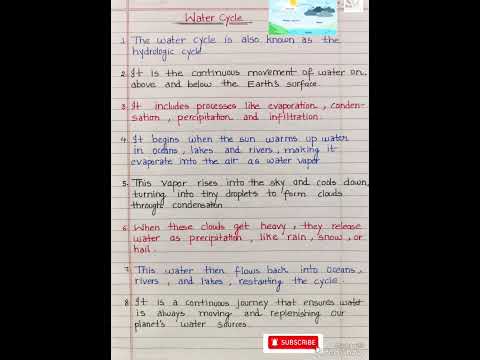 Water Cycle
1. The water cycle is also known as the
hydrologic cycle
2. It is the continuous movement of water on,
above and below the Earth's surface.
3. It includes processes like evaporation, conden-
sation, percipitation and infiltration.
4. It begins when the sun warms up water
in oceans, lakes and rivers, making it
evaporate into the air as water vapor
5. This vapor rises into the sky and cools down,
turning into tiny droplets to form clouds
through condensation
6. When these clouds get heavy, they release
water as precipitation, like rain, snow, or
hail.
7. This water then flows back into oceans,
rivers, and lakes, restarting the cycle.
8. It is a continuous journey that ensures water
is always moving and replenishing our
planet's water sources.
SUBSCRIBE